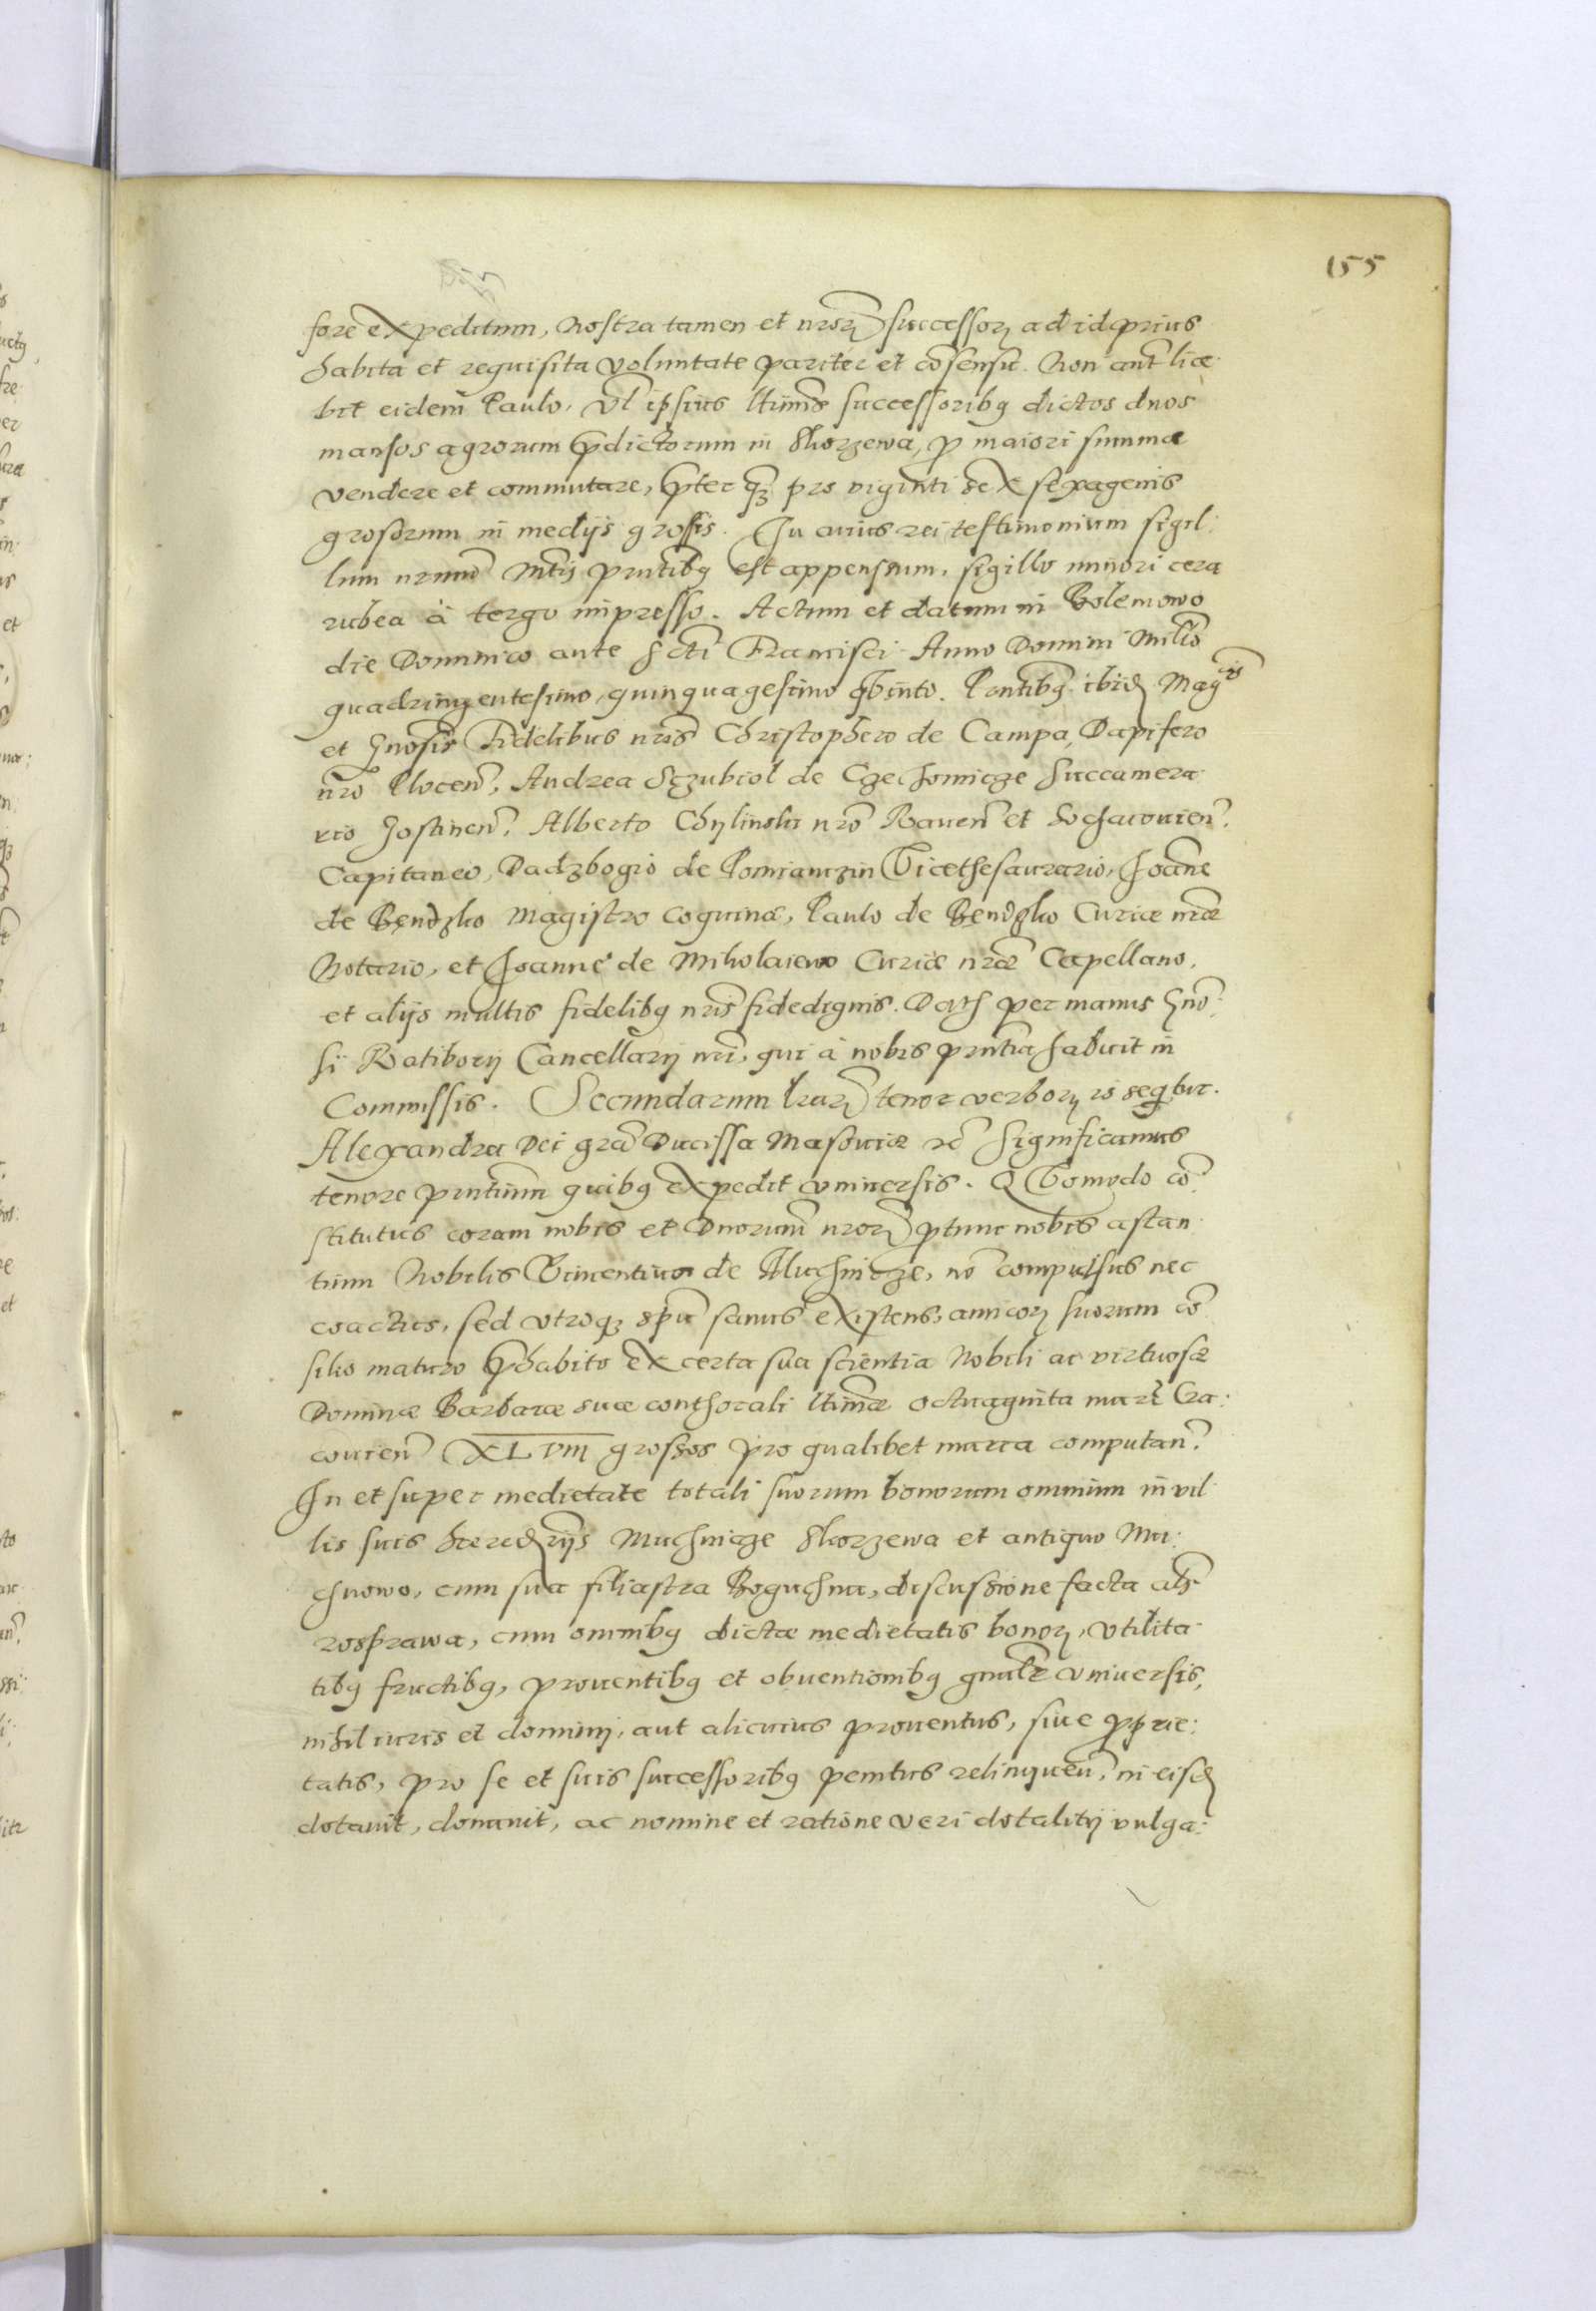 155
fore expeditum, nostra tamen et nror successor ad id prius
habita et requisita voluntate pariter et cosensu. Non aut lice
bit eidem Paulo, vl ipsius ltimis successoribq dictos duos
mansos agrorum pdictorum in Skorzewa, p maiori summa
vendere et commutare, pter qz pro viginti sex sexagenis
grosorum in medijs grossis. In cuius rei testimonium sigil:
lum nrum mtij pntibq est appensum, sigillo minori cera
rubea à tergo impresso. Actum et datum in Bolemowo
die Dominico ante Scti Francisci Anno Domini Milo
quadringentesimo quinquagesimo qvinto. Pntibq ibid Magcis
et Gnosis Fidelibus nris Christophero de Campa, Dapifero
nro Plocen, Andrea Sczubiol de Czechomicze Succamera
rio Gostinen, Alberto Chylinski nro Raven et Sochacouien.
Capitaneo, Dadzbogio de Pomianczin Vicethesaurario, Joane
de Bendzko Magistro coquinæ, Paulo de Bendzko Curiæ nræ
Notario, et Joanne de Mikolaiewo Curiæ nræ Capellano.
et alijs multis fidelibq nris fidedignis. Dat per manus Gno:
si Ratiborij Cancellarij nri, qui à nobis pntia habuit in
Commissis. Secundarum lrar tenor verbor is seqtur.
Alexandra Dei gra Ducissa Masouiæ &c Significamus
tenore pntium quibq expedit vniuersis. Qvomodo co
stitutus coram nobis et Dnorum nror ptunc nobis astan
tium Nobilis Vincentius de Muchnicze, no compulsus nec
coactus, sed vtroqz spu sanus existens, amicor suorum co
silio maturo phabito ex certa sua scientia Nobili ac virtuosæ
Dominæ Barbaræ suæ conthorali ltimæ octuaginta marc Cra:
couien XLVIII grossos pro qualibet marca computan.
In et super medietate totali suorum bonorum omnium in vil
lis suis hæredrijs Muchnicze Skorzewa et antiquo Mu:
chnowo, cum sua filiastra Boguchna, discussione facta als
rosprawa, cum omnibq dictæ medietatis bonor, vtilita
tibq fructibq, prouentibq et obuentionibq gnulr vniuersis,
nihil iuris et dominij, aut alicuius prouentus, siue pprie:
tatis, pro se et suis successoribq penitus relinquen, in eisd
dotauit, donauit, ac nomine et ratione veri dotalitij vulga: